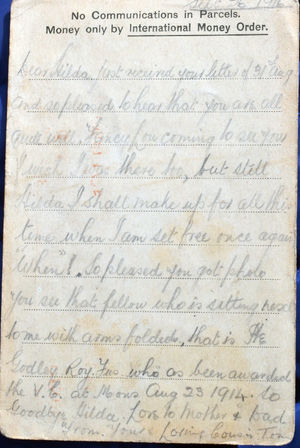 No Communications in Parcels.
Money only by International Money Order.
Dear Hilda, Just received your letter of 31st Aug
and so pleased to hear that you are all
quite well. Fancy Lou coming to see you
I wish I was there too, but still
Hilda, I shall make up for all this
time when I am set free once again
"When"! So pleased you got photo
You see that fellow who is sitting next
to me with arms folded, that is Pte
Godley Roy. Fus. who as been awarded
the V.C. at Mons Aug 23 1914. So
Goodbye Hilda. Love to Mother & Dad
from Your Loving Cousin Tom